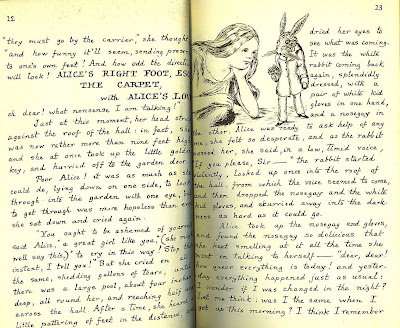 12
"they must go by the carrier," she thought
"and how funny it'll seem, sending prese
to one's own feet! And how odd the direct
will look! ALICE'S RIGHT FOOT, ES
THE CARPET,
with ALICE'S LO
oh dear! what nonsense I am talking!"
Just at this moment, her head str
against the roof of the hall: in fact, she
was now rather more than nine feet high
and she at once took up the little golde
key, and hurried off to the garden door
Poor Alice! it was as much as she
could do, lying down on one side, to look
through into the garden with one eye,
to get through was more hopeless than ev
she sat down and cried again.
"You ought to be ashamed of yourse
said Alice, "a great girl like you," (she mi
well say this,) "to cry in this way! Stop th
instant, I tell you!" But she cried on
the same, shedding gallons of tears, until
there was a large pool, about four inche
deep, all round her, and reaching half
across the hall. After a time, she heard
little pattering of feet in the distance,
23
dried her eyes to
see what was coming.
It was the white
rabbit coming back
again, splendidly
dressed, with a
pair of white kid
gloves in one hand,
and a nosegay in
the other. Alice was ready to ask help of any
one, she felt so desperate, and as the rabbit
passed her, she said, in a low, timid voice,
"If you please, Sir—" the rabbit started
violently, looked up once into the roof of
the hall, from which the voice seemed to come,
and then dropped the nosegay and the white
kid gloves, and skurried away into the dark-
ness as hard as it could go.
Alice took up the nosegay and gloves,
and found the nosegay so delicious that
she kept smelling at it all the time she
went on talking to herself— "dear, dear!
how queer everything is today! and yester-
day everything happened just as usual:
I wonder if I was changed in the night?
Let me think: was I the same when I
got up this morning? I think I remember